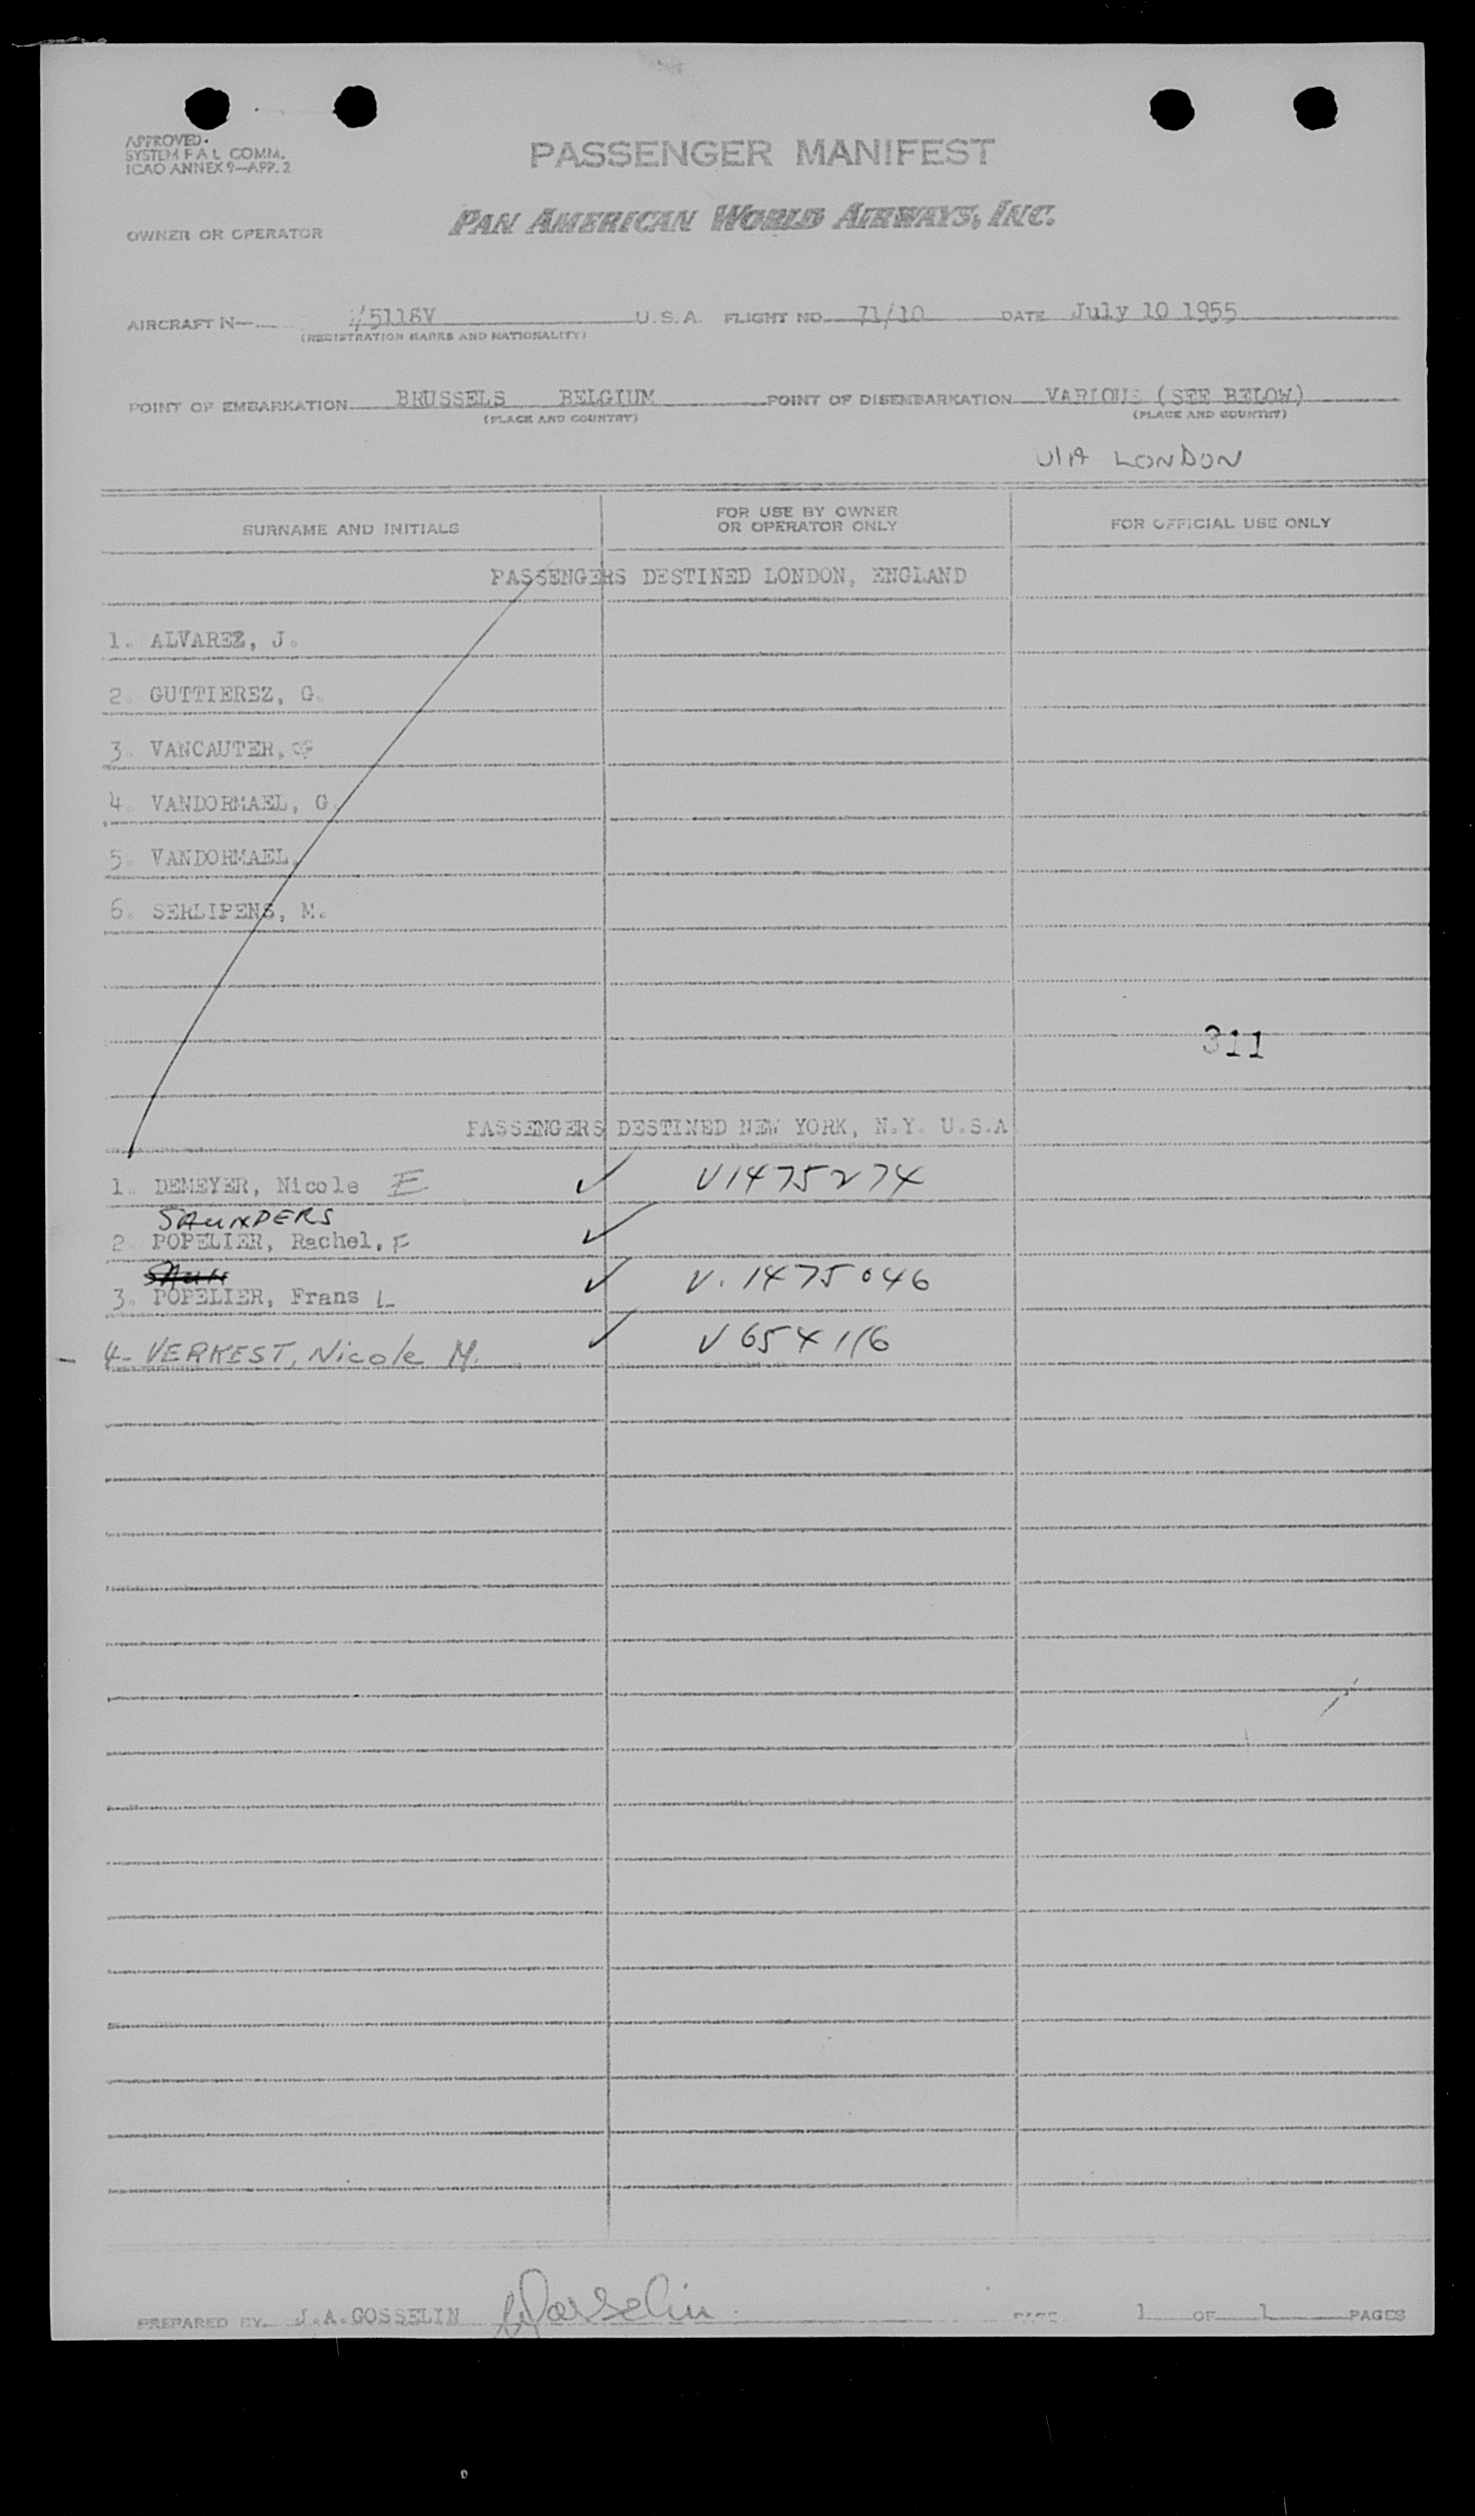 APPROVED.
SYSTEM F A L COMM.
ICAO ANNEX 9—APP. 2
PASSENGER MANIFEST
OWNER OR OPERATOR
PAN AMERICAN WORLD AIRWAYS, INC.
AIRCRAFT N— #5116V U.S.A. FLIGHT NO. 71/10 DATE July 10 1955
(REGISTRATION MARKS AND NATIONALITY)
POINT OF EMBARKATION BRUSSELS BELGIUM POINT OF DISEMBARKATION VARIOUS (SEE BELOW)
(PLACE AND COUNTRY) (PLACE AND COUNTRY)
VIA LONDON
SURNAME AND INITIALS FOR USE BY OWNER OR OPERATOR ONLY FOR OFFICIAL USE ONLY
PASSENGERS DESTINED LONDON, ENGLAND
1. ALVAREZ, J.
2. GUTTIEREZ, G.
3. VANCAUTER,
4. VANDORMAEL, G.
5. VANDORMAEL,
6. SERLIPENS, M.
311
PASSENGERS DESTINED NEW YORK, N.Y. U.S.A
1. DEMEYER, Nicole E ✓ V1475274
SAUNDERS
2. POPELIER, Rachel, F ✓
3. POPELIER, Frans L ✓ V. 1475046
4- VERKEST, Nicole M. ✓ V654116
PREPARED BY J.A.GOSSELIN Gosselin 1 OF 1 PAGES